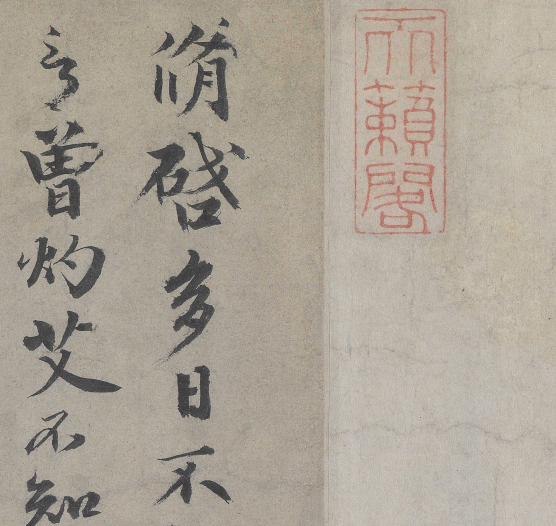 天籟閣
脩啓多日不
言曾灼艾不知